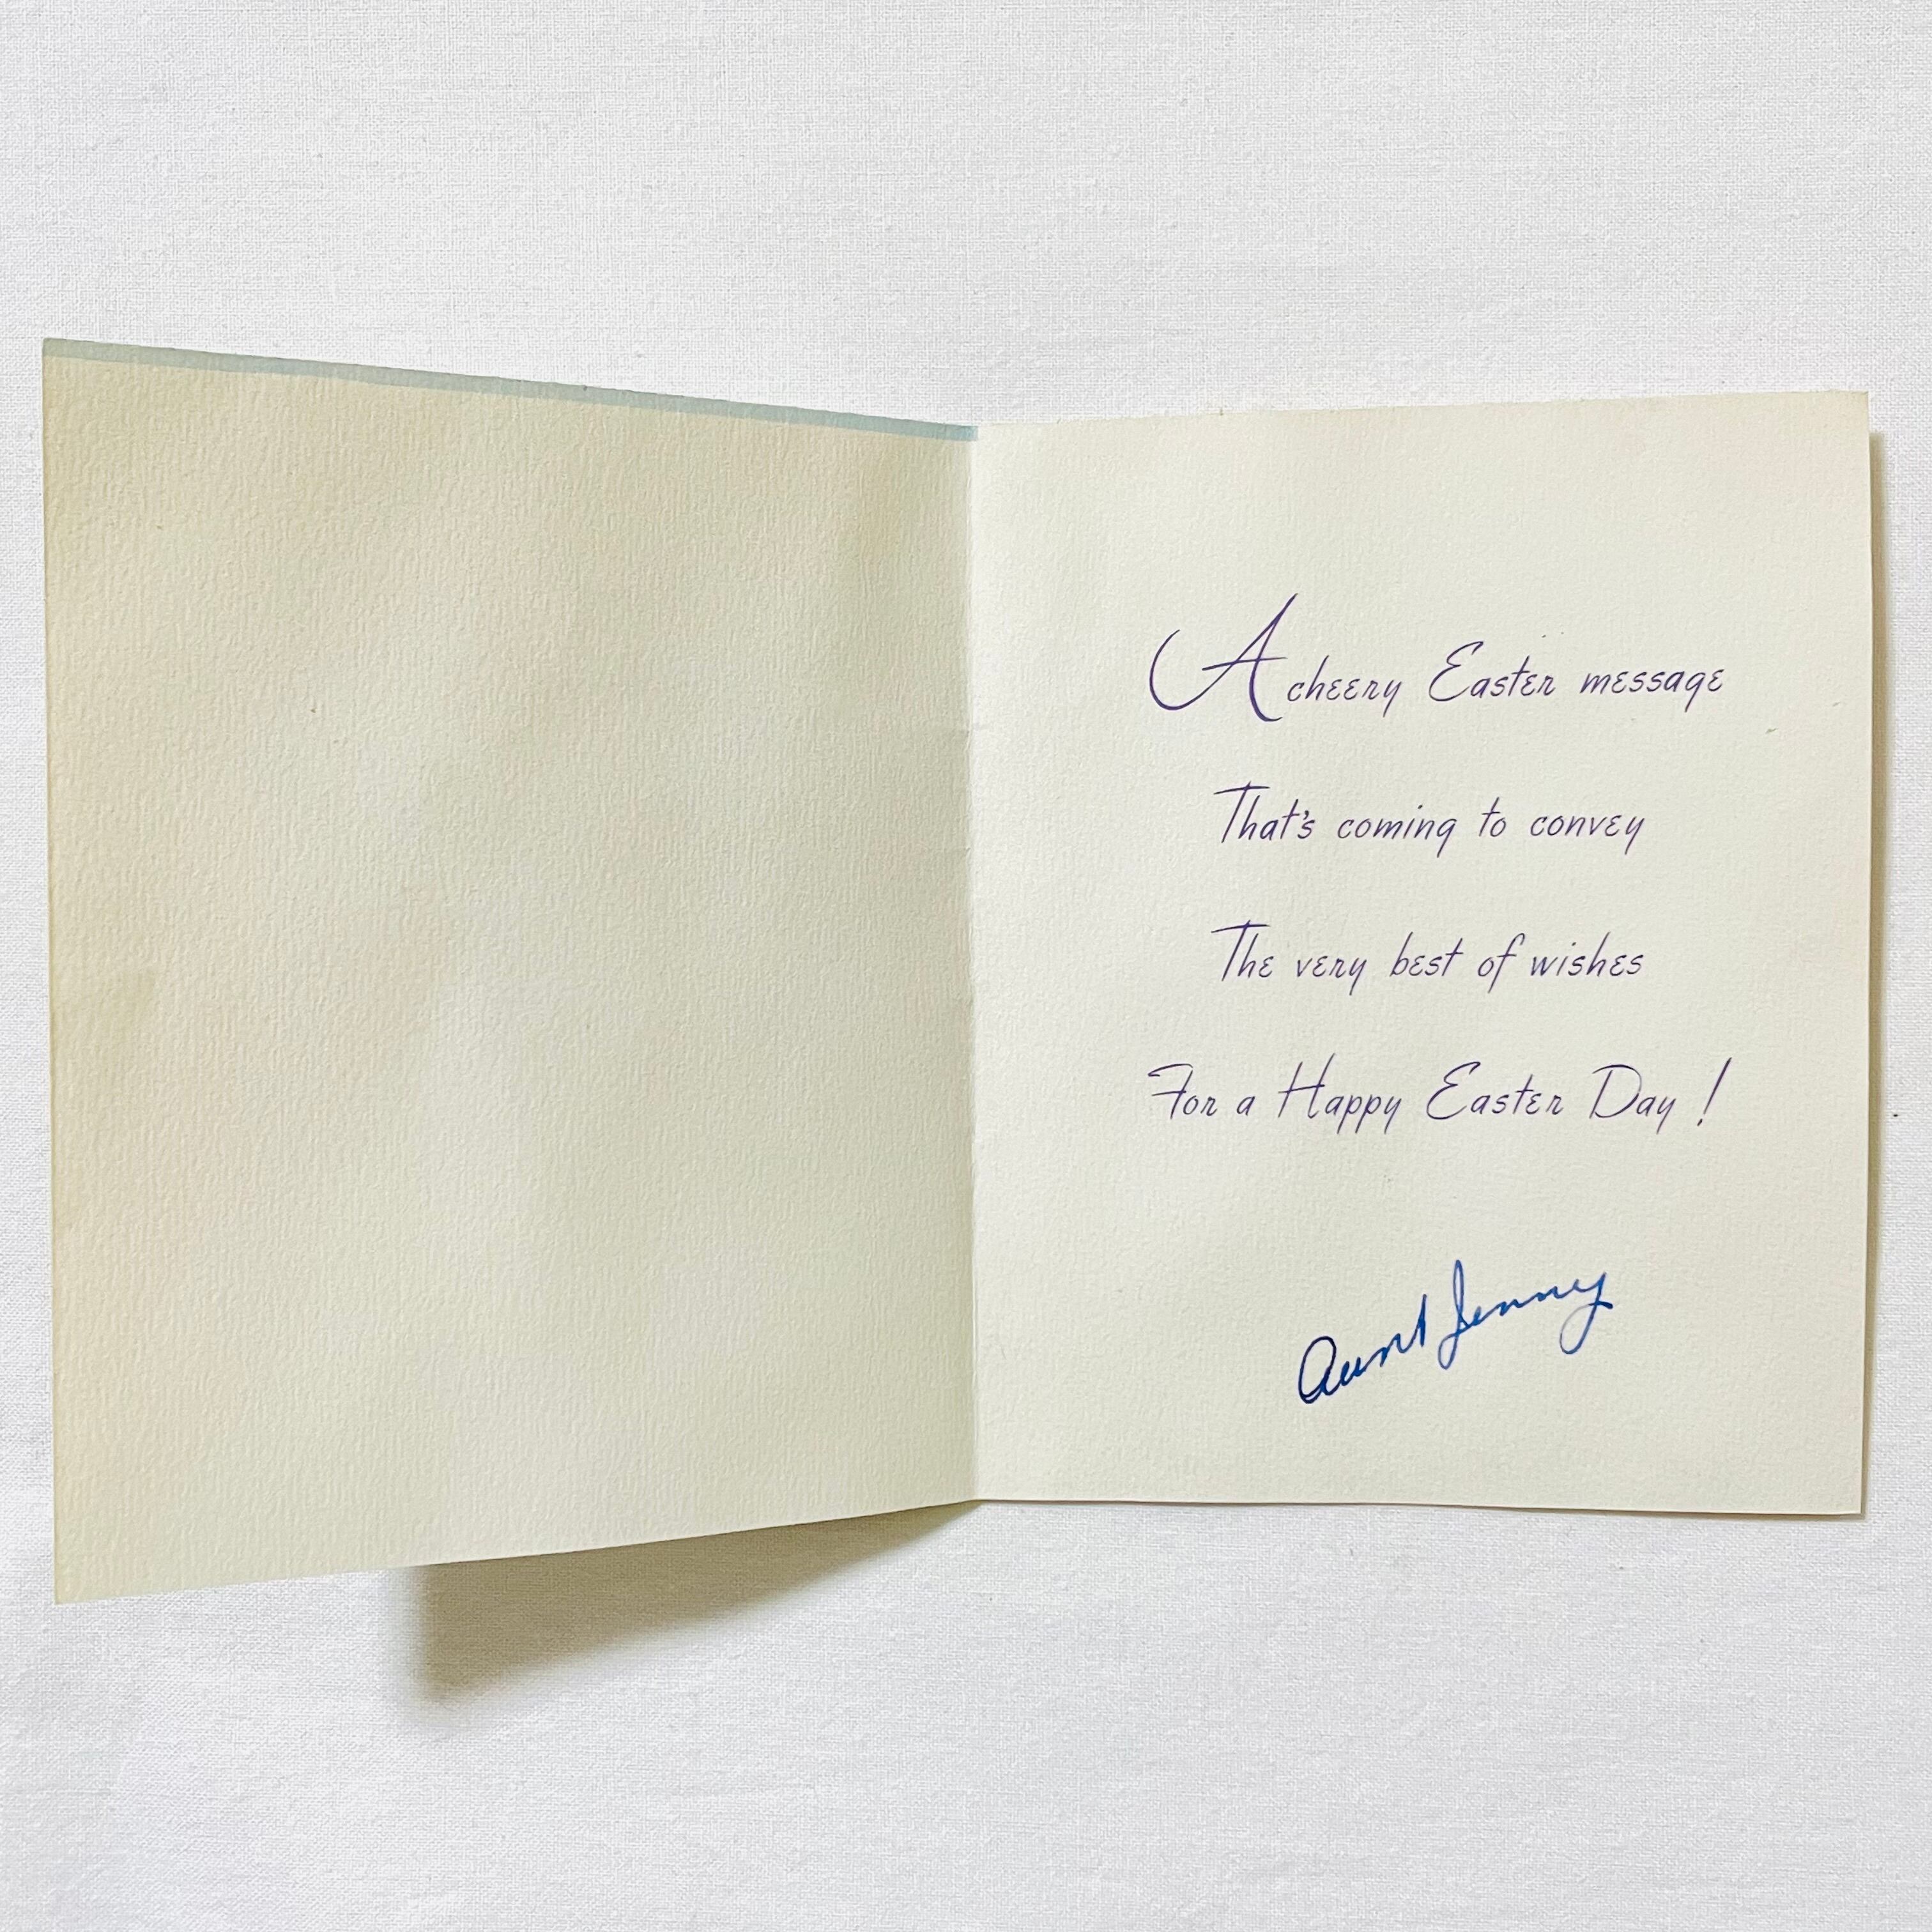 A cheery Easter message
That's coming to convey
The very best of wishes
For a Happy Easter Day !
Aunt Jenny